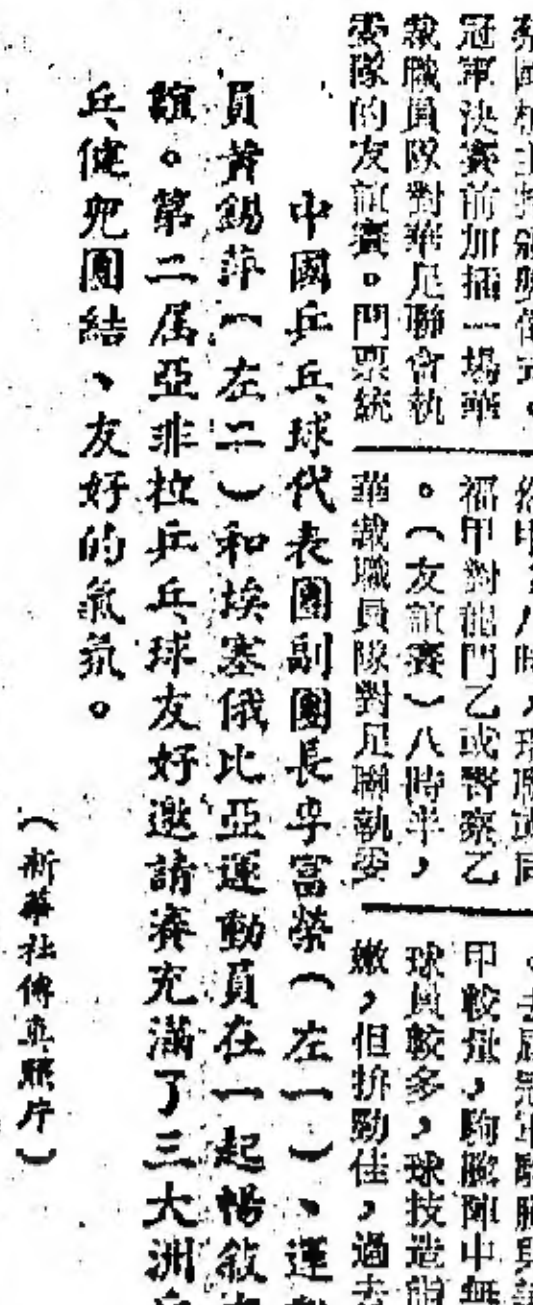 冠軍決賽前加插一場華
裁職員隊對華足聯會執
委隊的友誼賽。門票統
福甲對龍門乙或警察乙
。(友誼賽)八時半,
華裁職員隊對足聯執委
甲較量,駒騰陣中無
球員較多,球技造詣
嫩,但拚勁佳,過去
中國乒乓球代表團副團長李富榮(左一)、運
員黃錫萍(左二)和埃塞俄比亞運動員在一起暢敘
誼。第二屆亞非拉乒乓球友好邀請賽充滿了三大洲
乒健兒團結、友好的氣氛。
(新華社傳真照片)